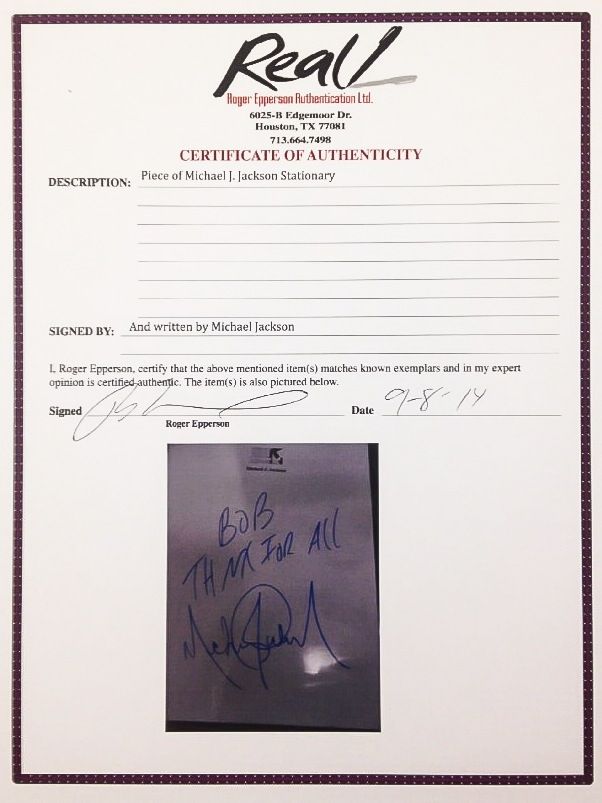 Real
Roger Epperson Authentication Ltd.
6025-B Edgemoor Dr.
Houston, TX 77081
713.664.7498
CERTIFICATE OF AUTHENTICITY
DESCRIPTION: Piece of Michael J. Jackson Stationary
SIGNED BY: And written by Michael Jackson
I, Roger Epperson, certify that the above mentioned item(s) matches known exemplars and in my expert
opinion is certified authentic. The item(s) is also pictured below.
Signed Date 9-8-14
Roger Epperson
Michael J. Jackson
BOB
THNX FOR All